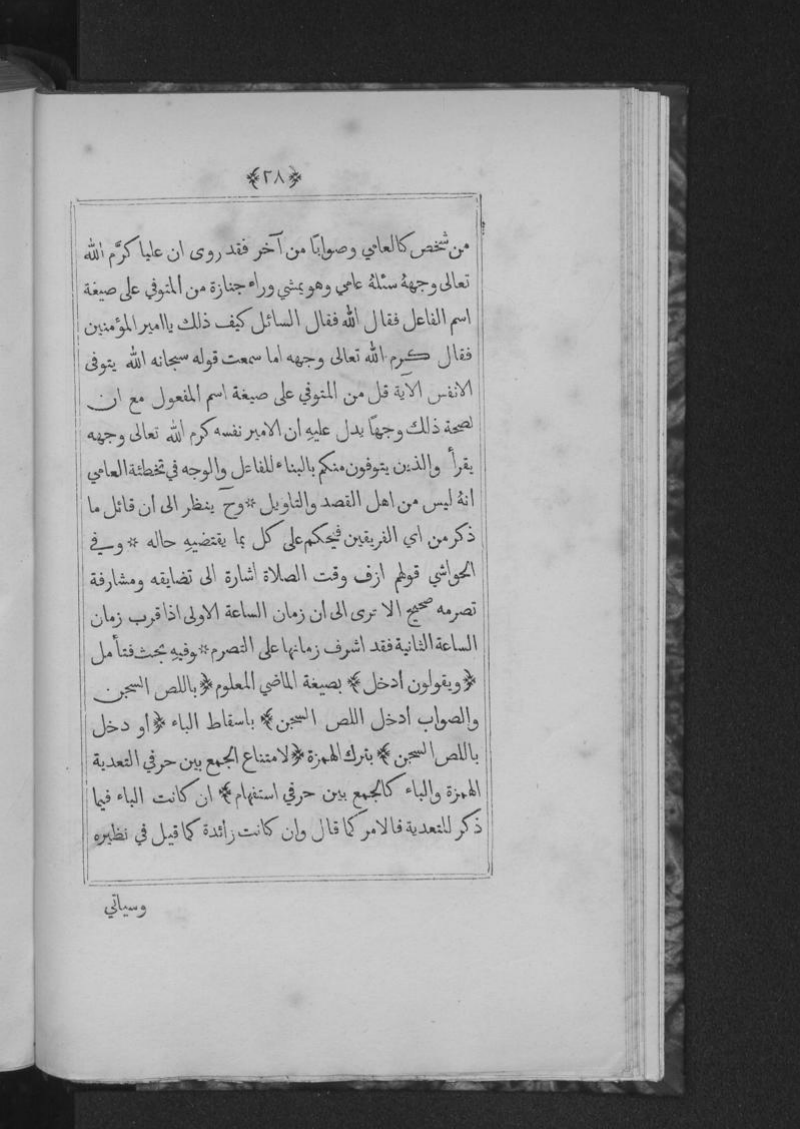 ﴿٢٨﴾
من شخص كالعامي وصوابًا من آخر فقد روى ان عليا كرَّم الله
تعالى وجههُ سئلهُ عامي وهو يمشي وراء جنازة من المتوفي على صيغة
اسم الفاعل فقال الله فقال السائل كيف ذلك ياامير المؤمنين
فقال كرم الله تعالى وجهه اما سمعت قوله سبحانه الله يتوفى
الانفس الآية قل من المتوفي على صيغة اسم المفعول مع ان
لصحة ذلك وجهًا يدل عليهِ ان الامير نفسه كرم الله تعالى وجهه
يقرأ والذين يتوفون منكم بالبناء للفاعل والوجه في تخطئة العامي
انهُ ليس من اهل القصد والتاويل * وحَ ينظر الى ان قائل ما
ذكر من اي الفريقين فيحكم على كل بما يقتضيهِ حاله * وفي
الحواشي قولهم ازف وقت الصلاة اشارة الى تضايقه ومشارفة
تصرمه صحيح الا ترى الى ان زمان الساعة الاولى اذا قرب زمان
الساعة الثانية فقد اشرف زمانها على التصرم * وفيهِ بحث فتأمل
﴿ويقولون أدخل﴾ بصيغة الماضي المعلوم ﴿باللص السجن
والصواب أدخل اللص السجن﴾ باسقاط الباء ﴿أو دخل
باللص السجن﴾ بترك الهمزة ﴿لامتناع الجمع بين حرفي التعدية
الهمزة والباء كالجمع بين حرفي استفهام﴾ ان كانت الباء فيما
ذكر للتعدية فالامر كما قال وان كانت زائدة كما قيل في نظيره
وسياتي